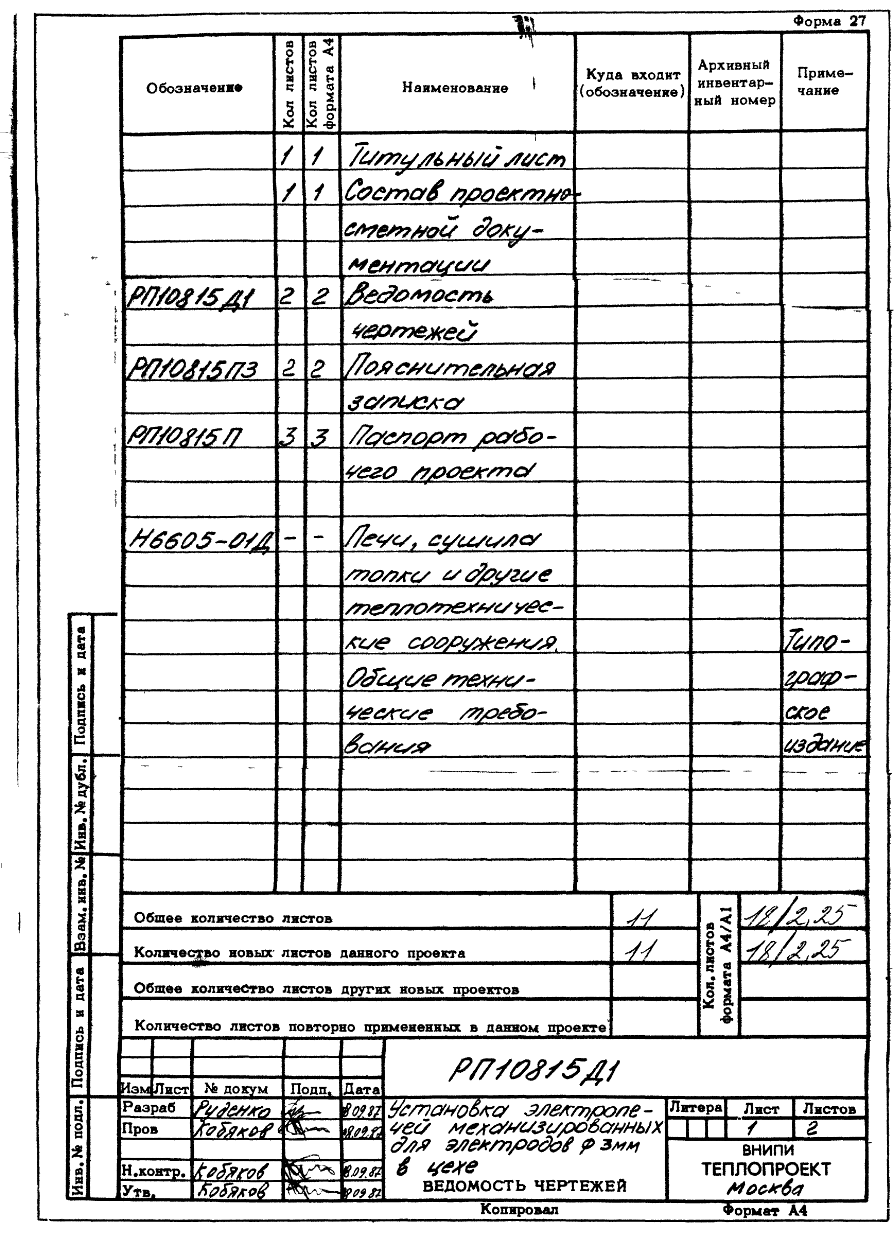 Форма 27
Обозначение
Кол листов
Кол листов формата А4
Наименование
Куда входит (обозначение)
Архивный инвентарный номер
Примечание
1 1 Титульный лист
1 1 Состав проектно-
сметной доку-
ментации
РП10815Д1 2 2 Ведомость
чертежей
РП10815ПЗ 2 2 Пояснительная
записка
РП10815П 3 3 Паспорт рабо-
чего проекта
Н6605-01Д - - Печи, сушила
топки и другие
теплотехничес-
кие сооружения. Типо-
Общие техни- граф-
ческие требо- ское
вания издание
Общее количество листов 11
Кол. листов формата А4/А1
18/2,25
Количество новых листов данного проекта 11 18/2,25
Общее количество листов других новых проектов
Количество листов повторно примененных в данном проекте
Подпись и дата
Инв. № дубл.
Взам. инв. №
Подпись и дата
Инв. № подл.
РП10815Д1
Изм Лист № докум Подп. Дата
Разраб Руденко 8.09.87
Пров Кобяков 18.09.87
Н.контр. Кобяков 8.09.87
Утв. Кобяков 8.09.87
Установка электропе-
чей механизированных
для электродов ф 3мм
в цехе
ВЕДОМОСТЬ ЧЕРТЕЖЕЙ
Литера Лист Листов
1 2
ВНИПИ
ТЕПЛОПРОЕКТ
Москва
Копировал Формат А4